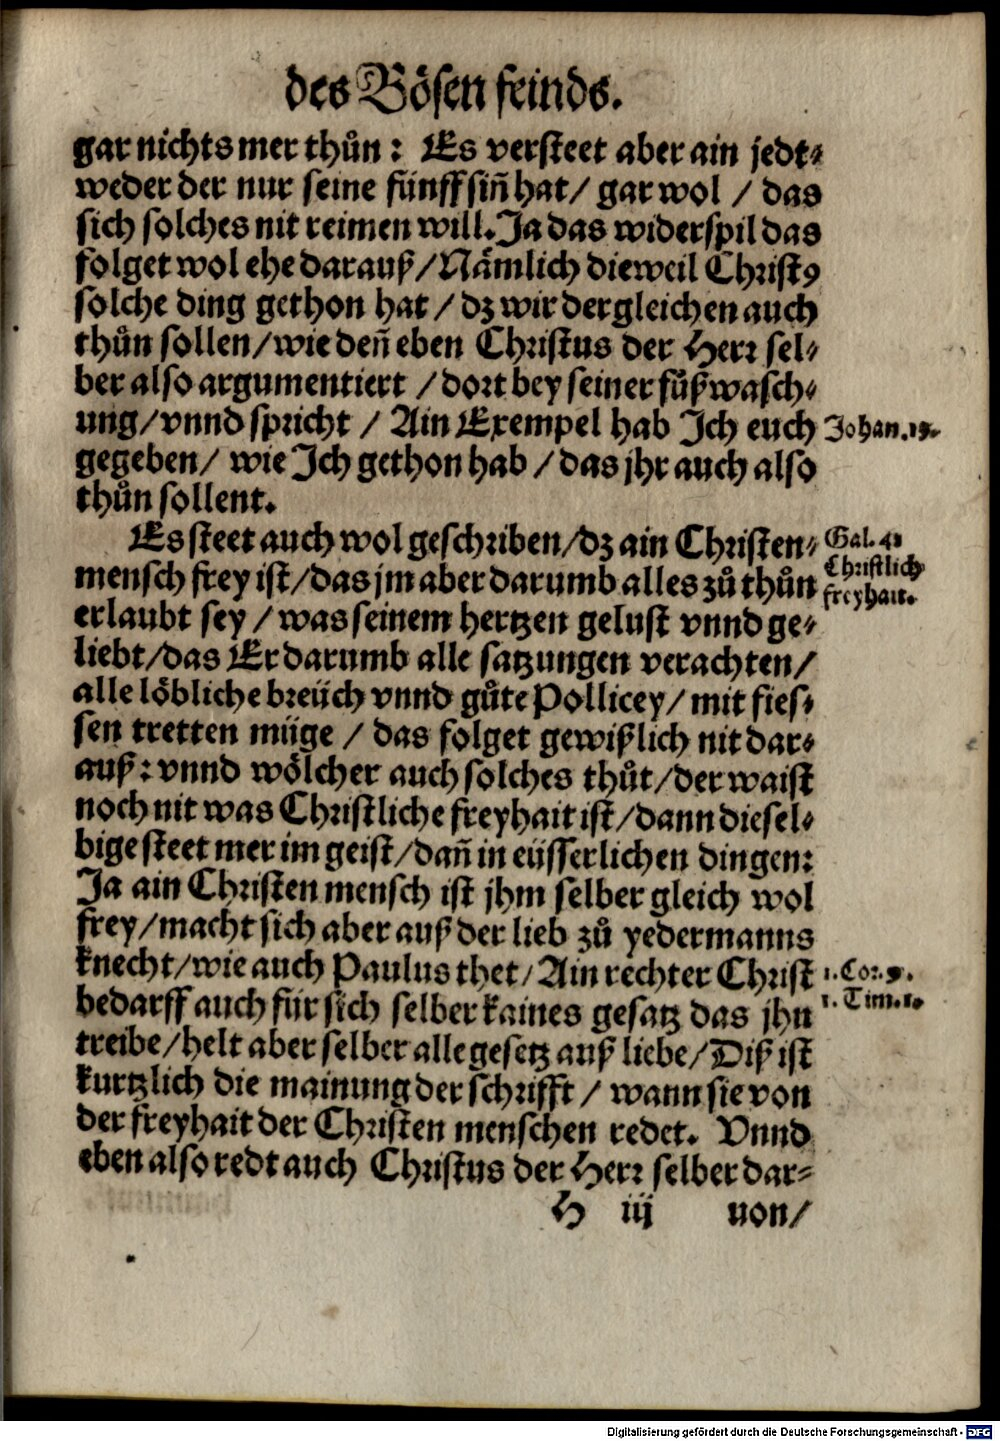 des Bösen feinds.
gar nichts mer thůn: Es versteet aber ain jedt⸗
weder der nur seine fünff siñ hat/ gar wol / das
sich solches nit reimen will. Ja das widerspil das
folget wol ehe darauß/ Nämlich dieweil Christꝰ
solche ding gethon hat / dz wir dergleichen auch
thůn sollen/ wie deñ eben Christus der Herr sel⸗
ber also argumentiert / dort bey seiner fůßwasch⸗
ung/ vnnd spricht / Ain Exempel hab Ich euch
Johan. 13.
gegeben/ wie Ich gethon hab / das jhr auch also
thůn sollent.
Es steet auch wol geschriben/ dz ain Christen⸗
Gal. 4
mensch frey ist/ das jm aber darumb alles zů thůn
Christlich
freyhait.
erlaubt sey / was seinem hertzen gelust vnnd ge⸗
liebt/ das Er darumb alle satzungen verachten/
alle löbliche breüch vnnd gůte Pollicey/ mit fies⸗
sen tretten müge / das folget gewißlich nit dar⸗
auß: vnnd wölcher auch solches thůt/ der waist
noch nit was Christliche freyhait ist/ dann diesel⸗
bige steet mer im geist/ dañ in eüsserlichen dingen:
Ja ain Christen mensch ist jhm selber gleich wol
frey/ macht sich aber auß der lieb zů yedermanns
knecht/ wie auch Paulus thet/ Ain rechter Christ
1. Cor. 9.
bedarff auch für sich selber kaines gesatz das jhn
1. Tim. 1.
treibe/ helt aber selber alle gesetz auß liebe/ Diß ist
kurtzlich die mainung der schrifft / wann sie von
der freyhait der Christen menschen redet. Vnnd
eben also redt auch Christus der Herr selber dar⸗
H iij von/
Digitalisierung gefördert durch die Deutsche Forschungsgemeinschaft - DFG